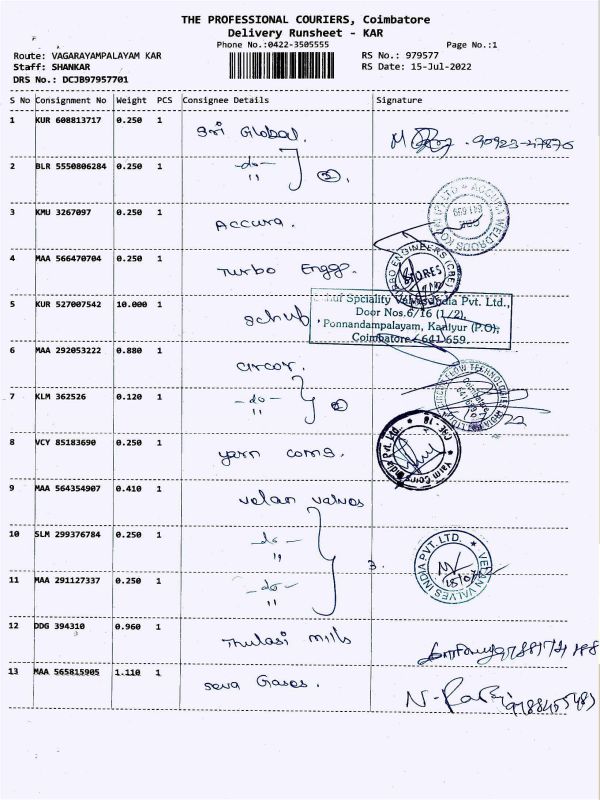 THE PROFESSIONAL COURIERS, Coimbatore
Delivery Runsheet - KAR
Phone No.:0422-3505555
Page No.:1
Route: VAGARAYAMPALAYAM KAR
RS No.: 979577
Staff: SHANKAR
RS Date: 15-Jul-2022
DRS No.: DCJB97957701
S No Consignment No Weight PCS Consignee Details Signature
1 KUR 608813717 0.250 1 Sri Global.
2 BLR 5550806284 0.250 1 -do-
"
3 KMU 3267097 0.250 1 Accura.
4 MAA 566470704 0.250 1 Turbo Engg.
STORES
5 KUR 527007542 10.000 1 Schuf.
Door Nos.6/16 (1/2),
Ponnandampalayam, Kaniyur (P.O),
Coimbatore - 641 659.
6 MAA 292053222 0.880 1 Circor.
7 KLM 362526 0.120 1 -do-
"
8 VCY 85183690 0.250 1 yarn coms.
9 MAA 564354907 0.410 1 velan valves
10 SLM 299376784 0.250 1 -do-
"
3.
11 MAA 291127337 0.250 1 -do-
"
VELAN VALVES INDIA PVT. LTD.
12 DDG 394310 0.960 1 Thulasi mills
13 MAA 565815905 1.110 1 Seva Gases.